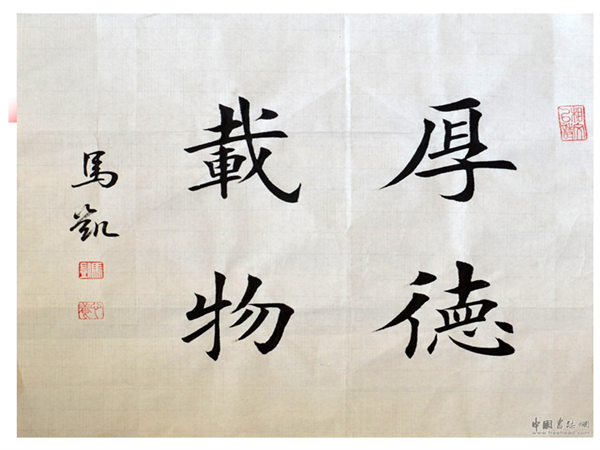 厚德
載物
馬凱
中國書法網